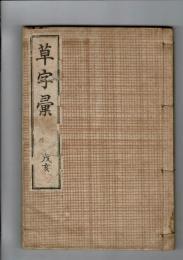 草字彙
戌亥